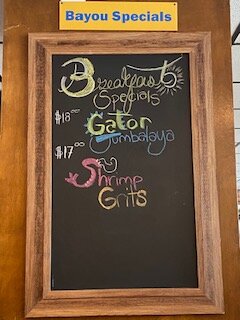 Bayou Specials
Breakfast
Specials
$18.00 Gator
Jumbalaya
$17.00 Shrimp
Grits